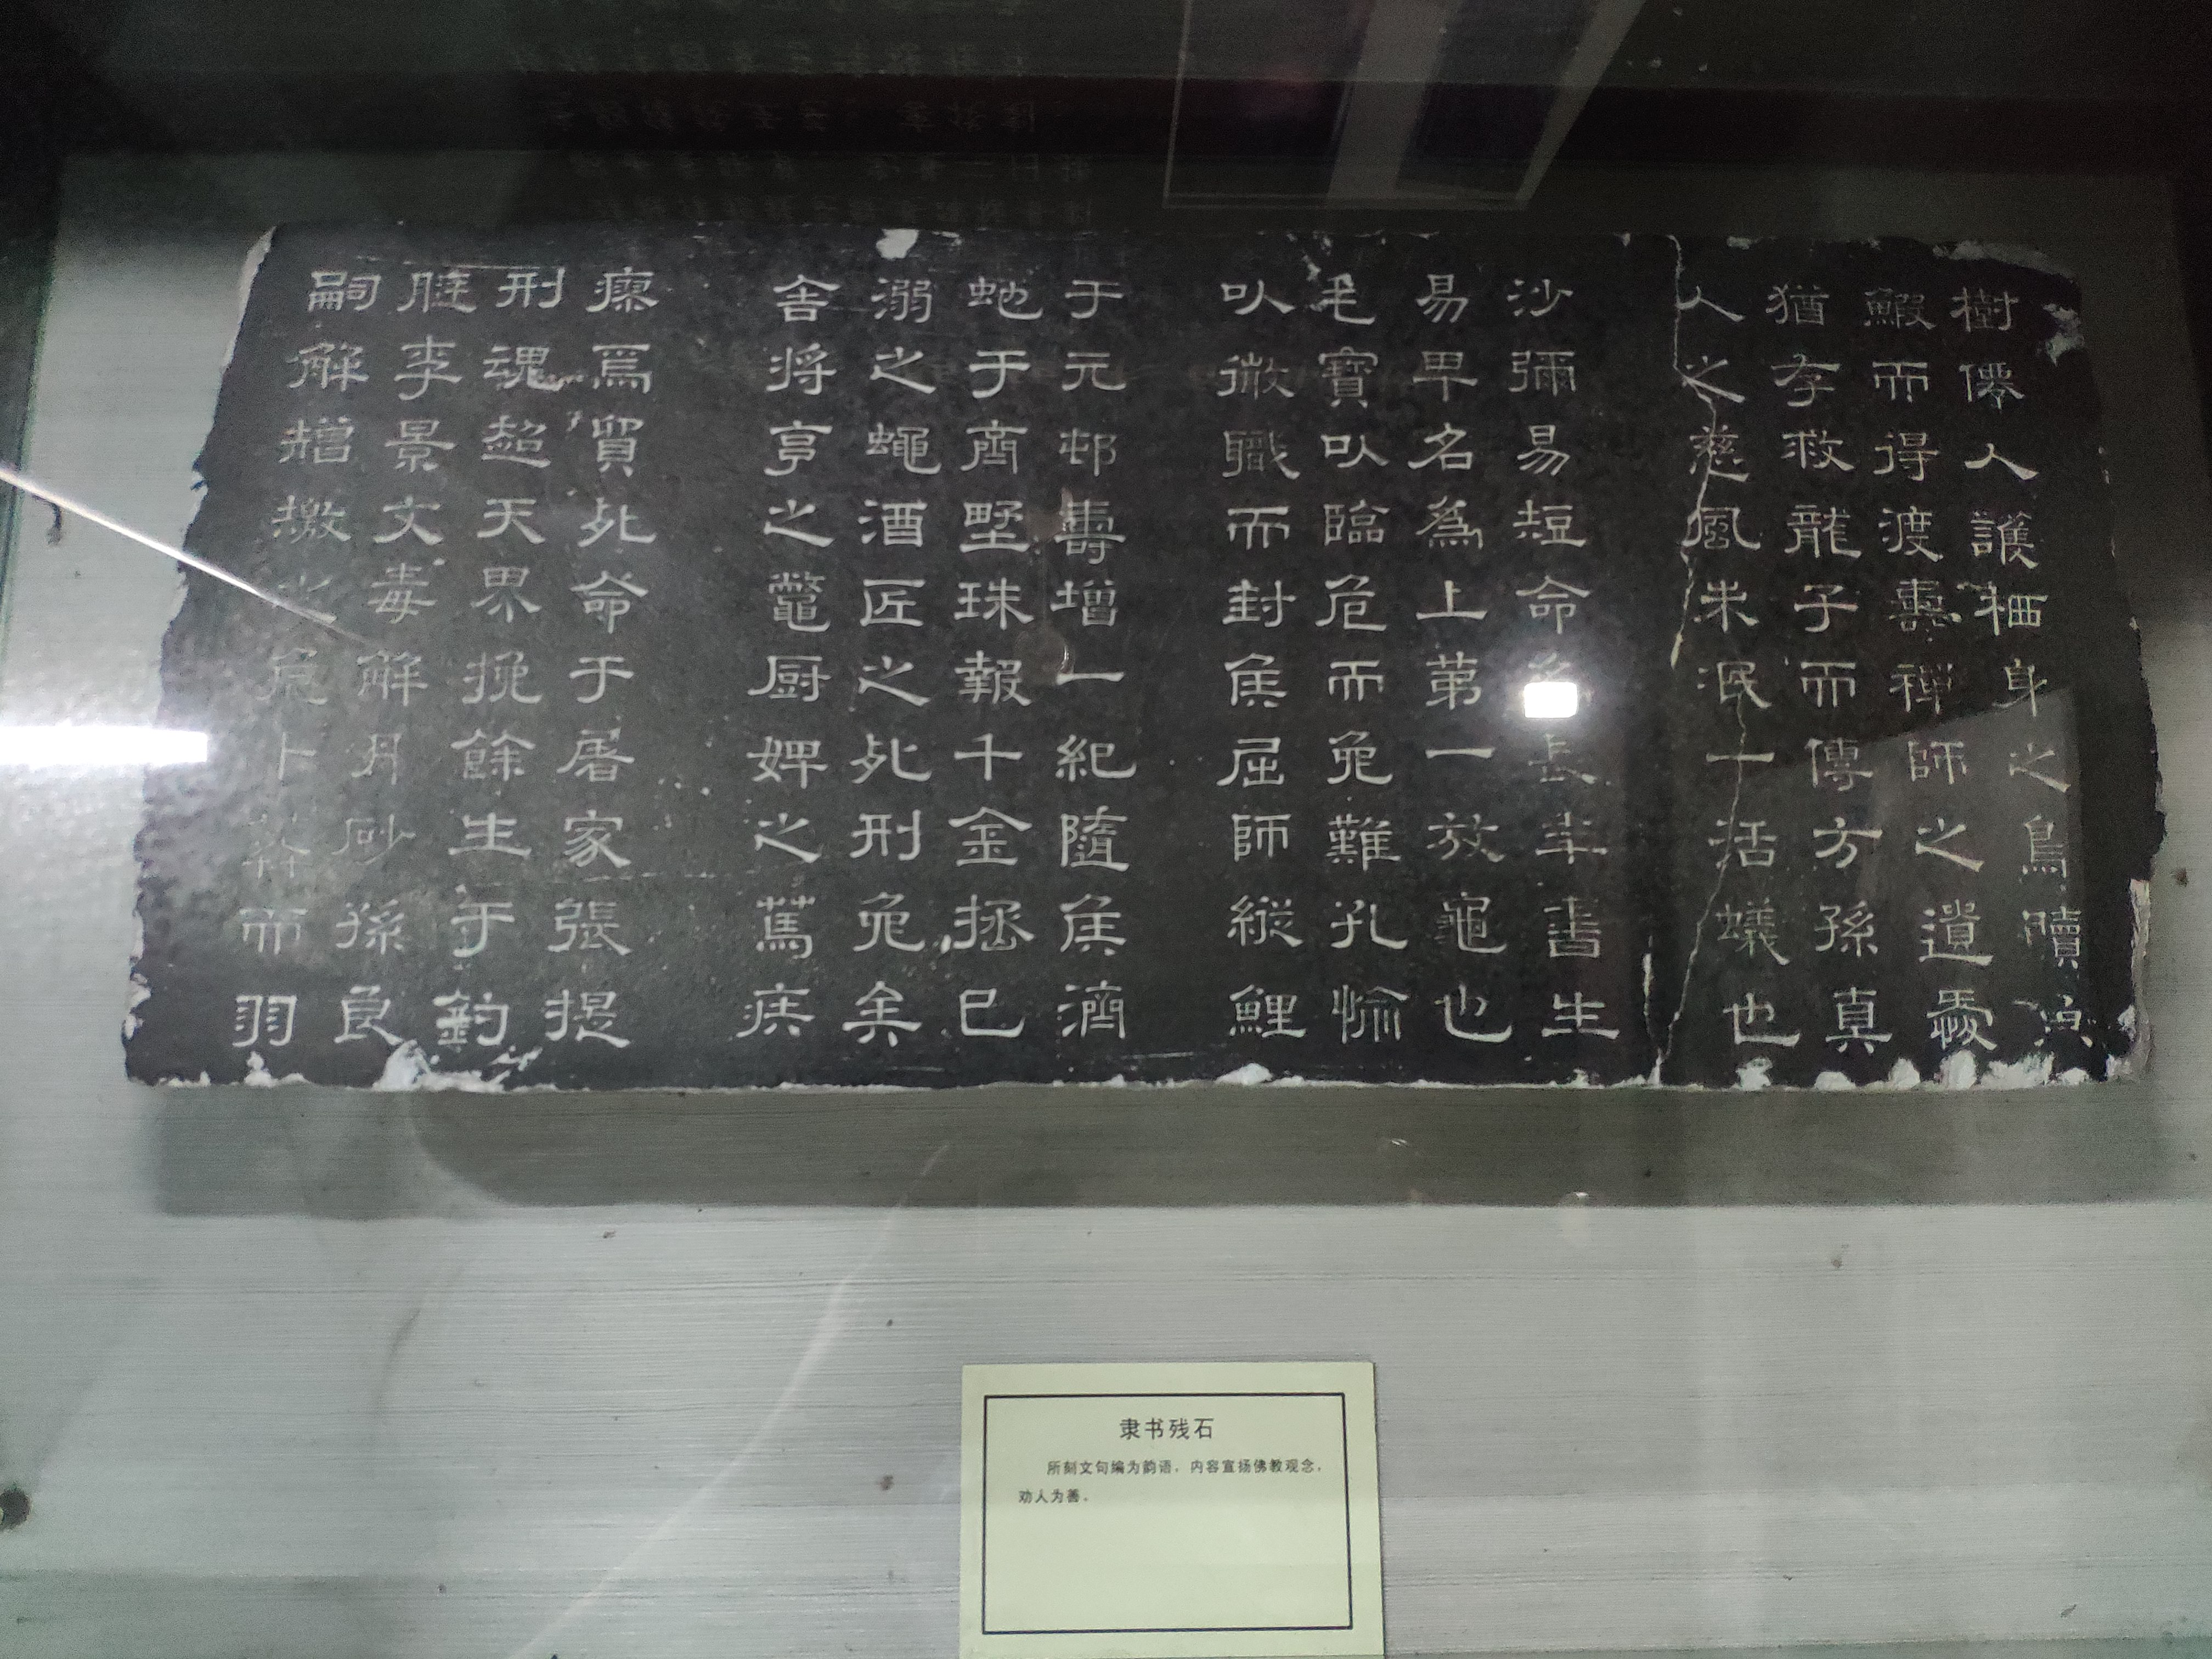 樹僊人護栖身之鳥贖
鰕而得渡壽禪師之遺愛
猶存救龍子而傳方孫真
人之慈風未泯一活蟻也
沙彌易短命為長年書生
易卑名為上第一放龜也
毛寶以臨危而免難孔愉
以微職而封侯屈師縱鯉
于元邨壽增一紀隨侯濟
虵于齊野珠報千金拯已
溺之蠅酒匠之死刑免矣
舍將亨之鼈厨婢之篤疾
瘳焉貿死命于屠家張提
刑魂超天界挽餘生于釣
艇李景文毒解丹砂孫良
嗣解矰繳之危卜葬而羽
隶书残石
所刻文句编为韵语，内容宣扬佛教观念，
劝人为善。